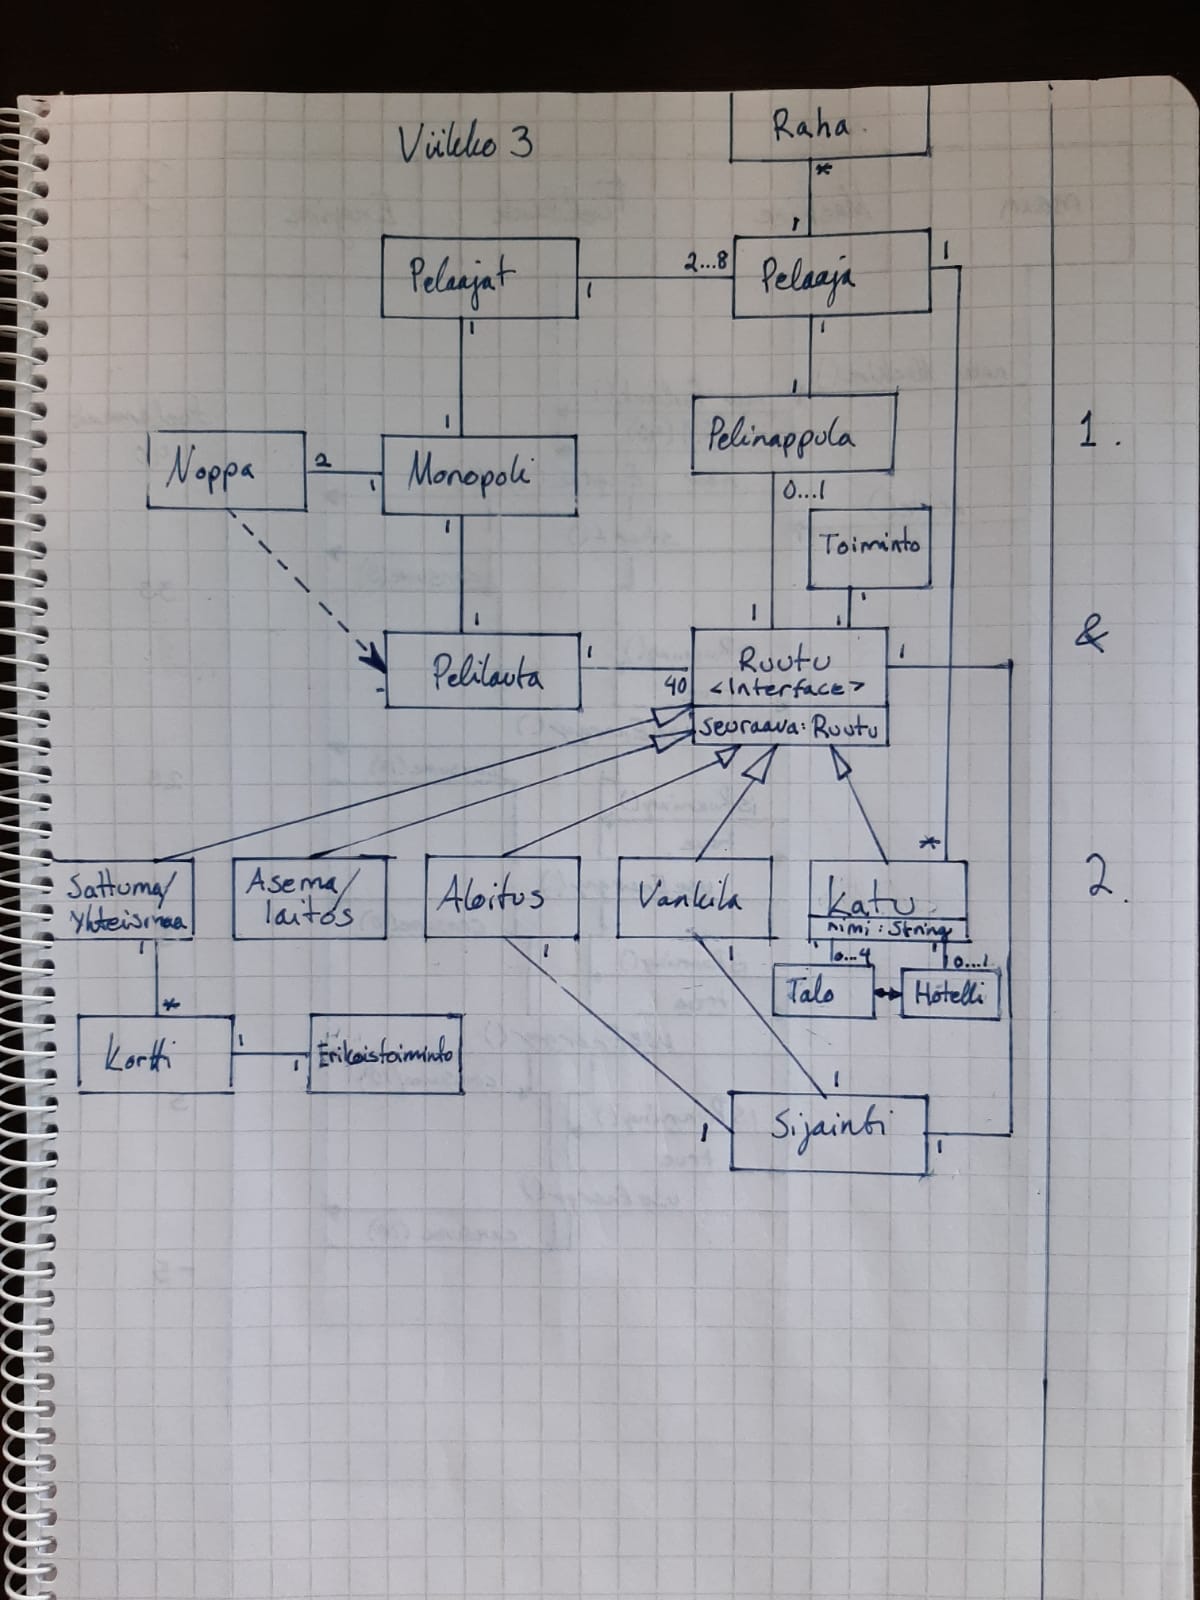 Viikko 3
Raha
*
1
Pelaajat
1
2...8
Pelaaja
1
1
1
1
1
Pelinappula
0...1
Noppa
2
1
Monopoli
1
Toiminto
1
1
1
1
Pelilauta
1
40
Ruutu
<Interface>
1
seuraava: Ruutu
*
Sattuma/
Yhteismaa
Asema/
laitos
Aloitus
Vankila
Katu
nimi: String
1
1
1
1
0...4
1
0...1
Talo
Hotelli
*
Kortti
1
1
Erikoistoiminto
1
1
Sijainti
1
1.
&
2.